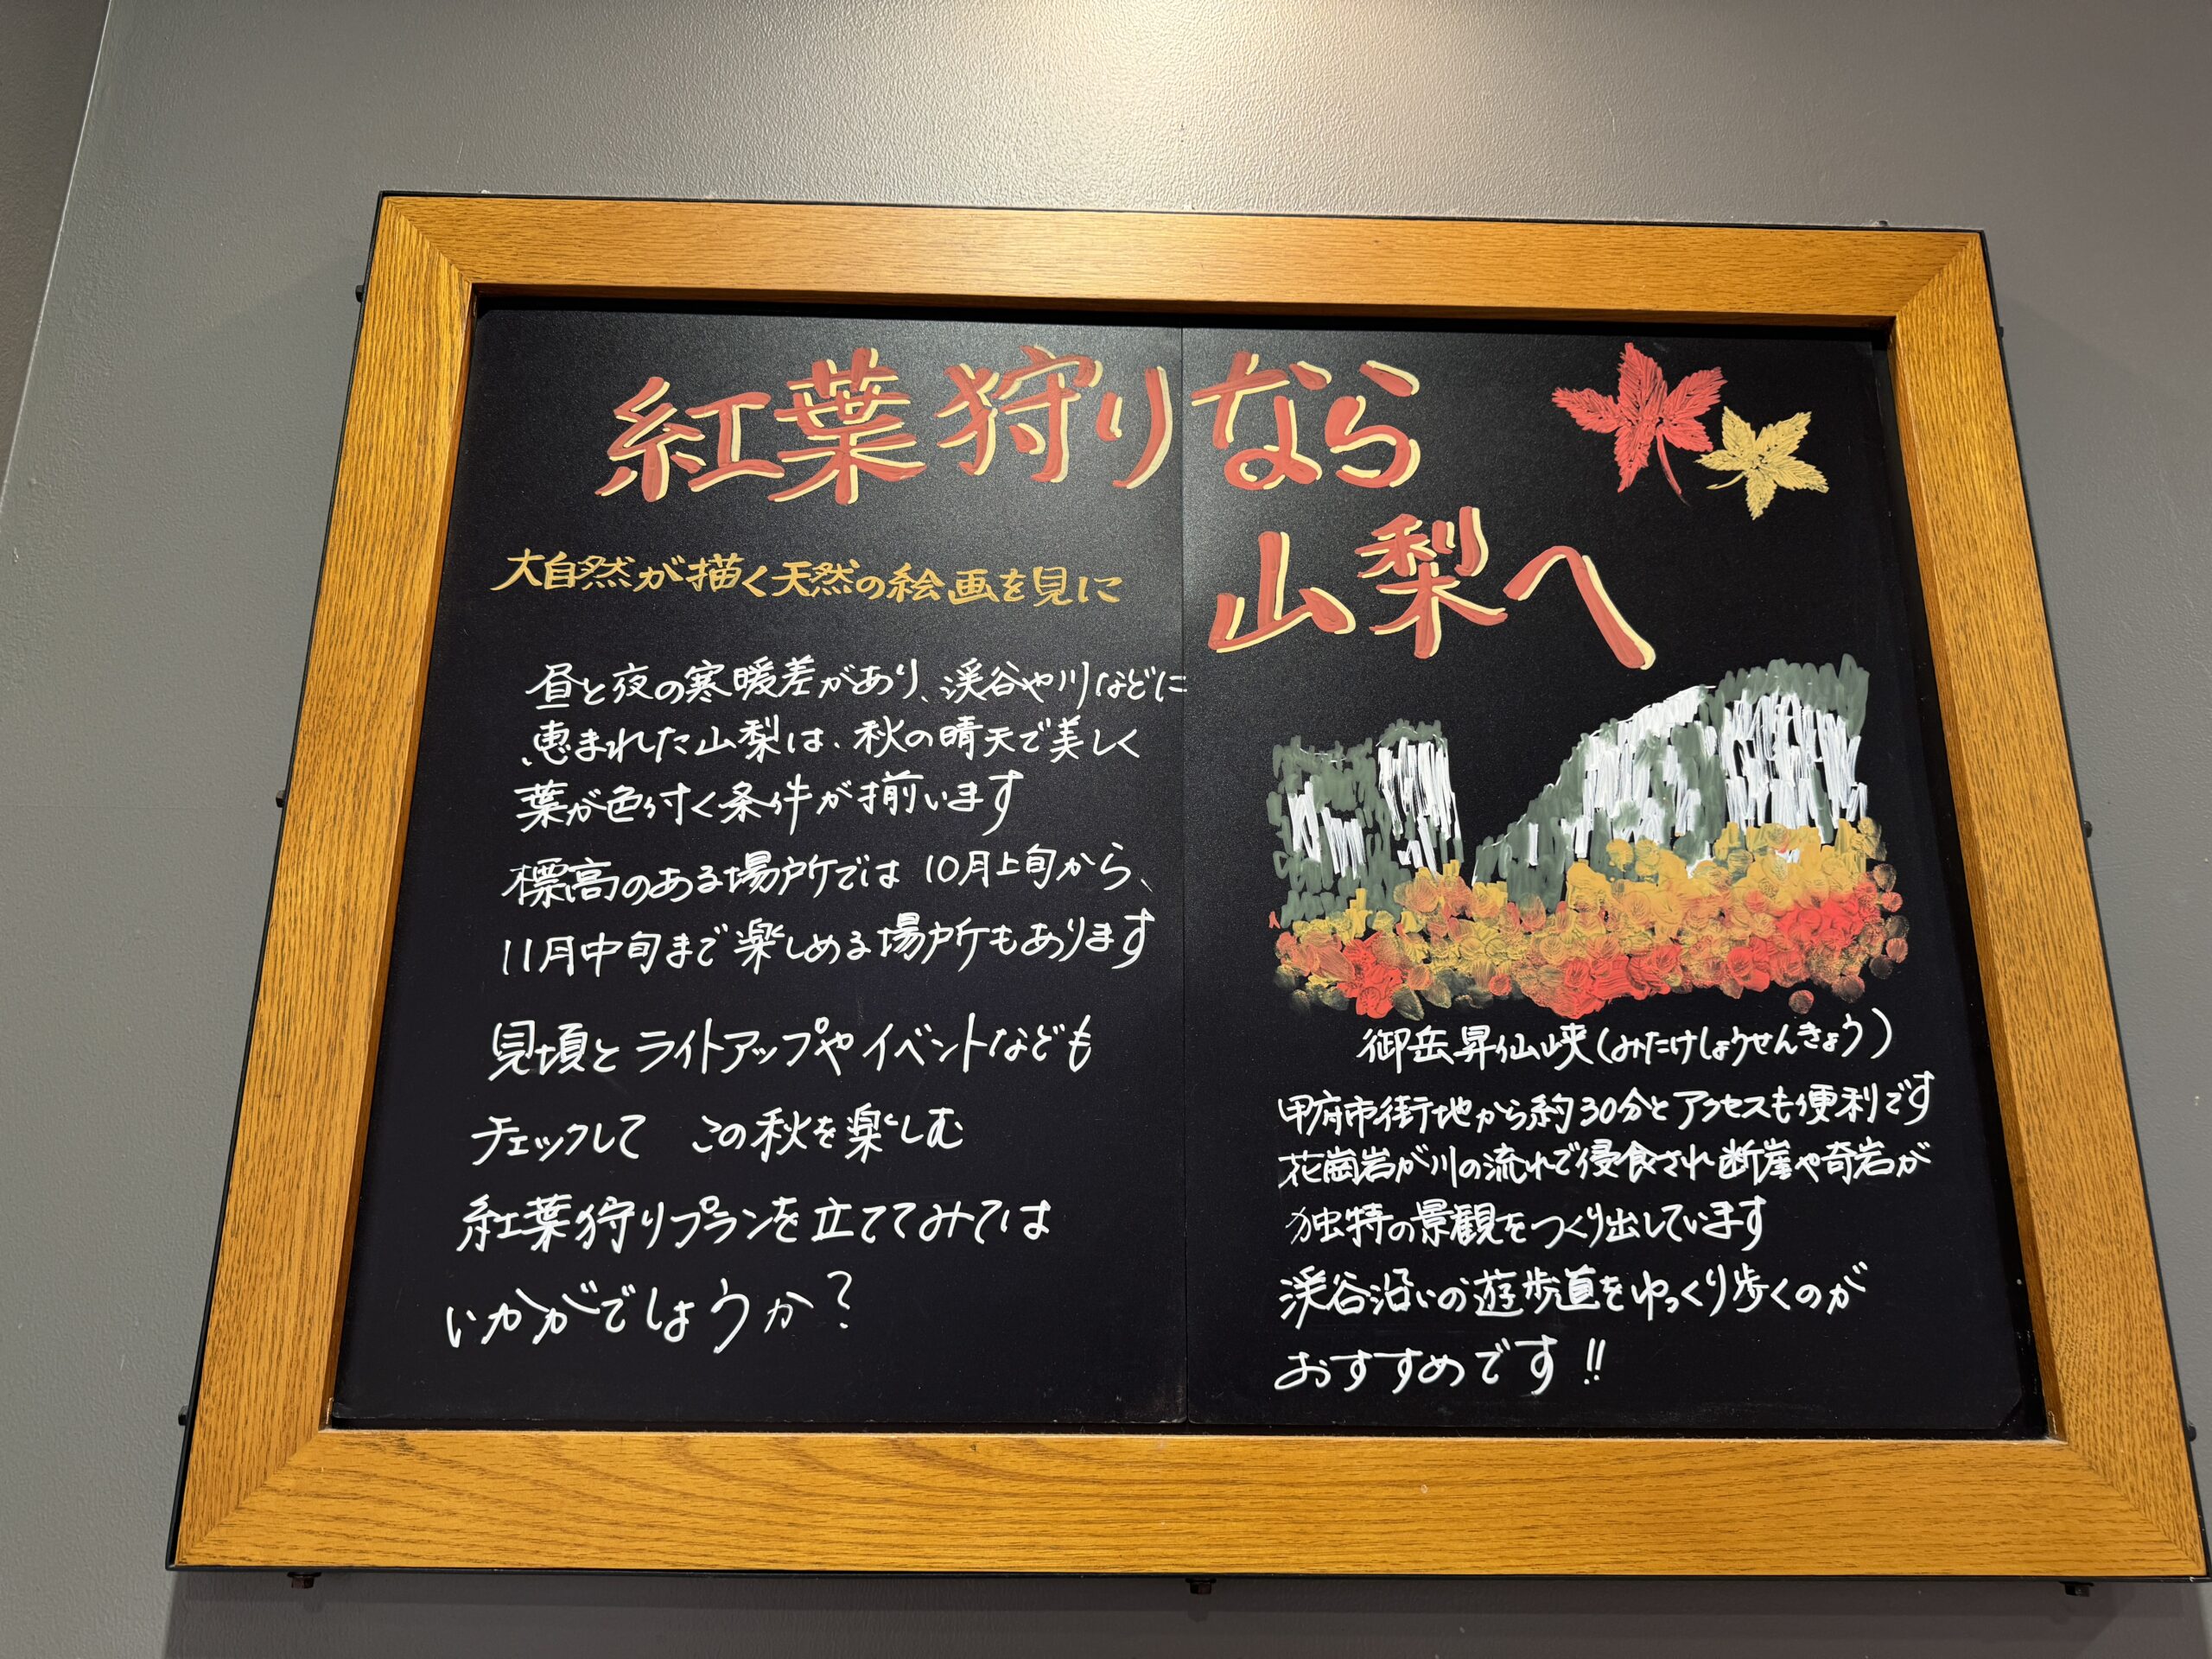 紅葉狩りなら
山梨へ
大自然が描く天然の絵画を見に
昼と夜の寒暖差があり、渓谷や川などに
恵まれた山梨は、秋の晴天で美しく
葉が色付く条件が揃います
標高のある場所では 10月上旬から、
11月中旬まで楽しめる場所もあります
見頃とライトアップやイベントなども
チェックして この秋を楽しむ
紅葉狩りプランを立ててみては
いかがでしょうか?
御岳昇仙峡(みたけしょうせんきょう)
甲府市街地から約30分とアクセスも便利です
花崗岩が川の流れで侵食され断崖や奇岩が
独特の景観をつくり出しています
渓谷沿いの遊歩道をゆっくり歩くのが
おすすめです!!